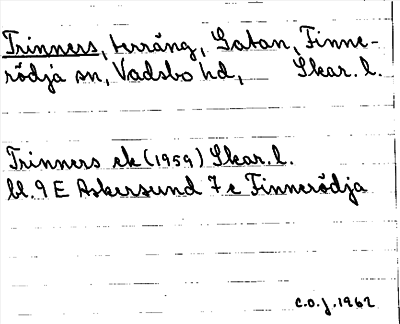 Trinners, terräng, Gatan, Finne-
rödja sn, Vadsbo hd, Skar. l.
Trinners ek (1959) Skar. l.
bl. 9 E Askersund 7 e Finnerödja
C.O.J. 1962